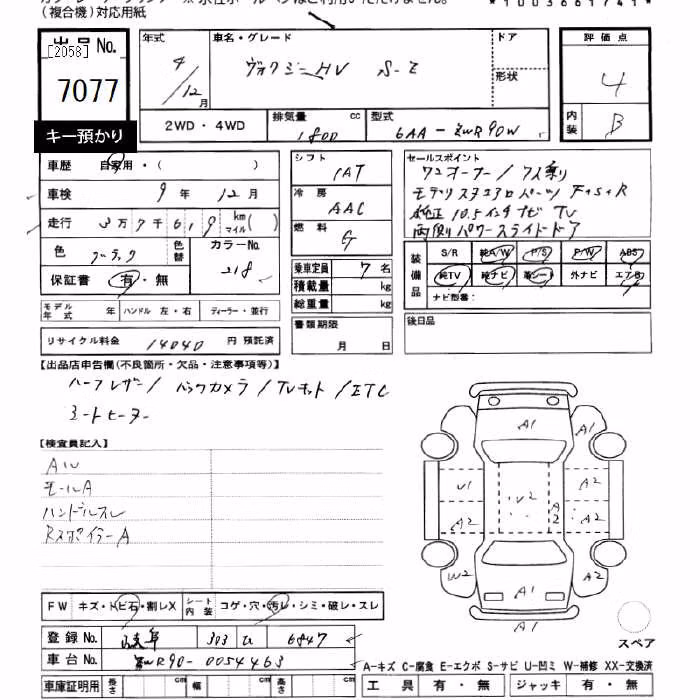 (複合機)対応用紙
*1003661741*
出品 No.
[2058]
7077
キー預かり
年式
4/12月
車名・グレード
ヴォクシーHV S-Z
ドア
形状
評価点
4
内装
B
2WD・4WD
排気量
1800 cc
型式
6AA-ZWR90W
車歴 自家用・( )
車検 9年 12月
走行 3万7千619 km マイル( )
色 ブラック
色替
カラーNo. 218
保証書 有・無
シフト
IAT
冷房
AAC
燃料
G
乗車定員 7名
積載量 kg
総重量 kg
書類期限
月 日
セールスポイント
ワンオーナー/7人乗り
モデリスタエアロパーツ F+S+R
純正10.5インチナビ TV
両側パワースライドドア
装備品
S/R 純A/W P/S P/W ABS
純TV 純ナビ 革シート 外ナビ エアB
ナビ型番:
後日品
モデル年式 年 ハンドル 左・右 ディーラー・並行
リサイクル料金 14040 円 預託済
【出品店申告欄(不良箇所・欠品・注意事項等)】
ハーフレザー/バックカメラ/TVキット/ETC
シートヒーター
【検査員記入】
AW
モールA
ハンドルスレ
RスポイラーA
A1
A1
U1
A2
U2
A2
A2
A2
A2
W2
A2
A1
A1
スペア
FW キズ・トビ石・割レX
シート内装 コゲ・穴・汚レ・シミ・破レ・スレ
登録 No. 岐阜 303 ひ 6847
車台 No. ZWR90-0054463
A-キズ C-腐食 E-エクボ S-サビ U-凹ミ W-補修 XX-交換済
車庫証明用 長さ cm 幅 cm 高さ cm
工具 有・無 ジャッキ 有・無